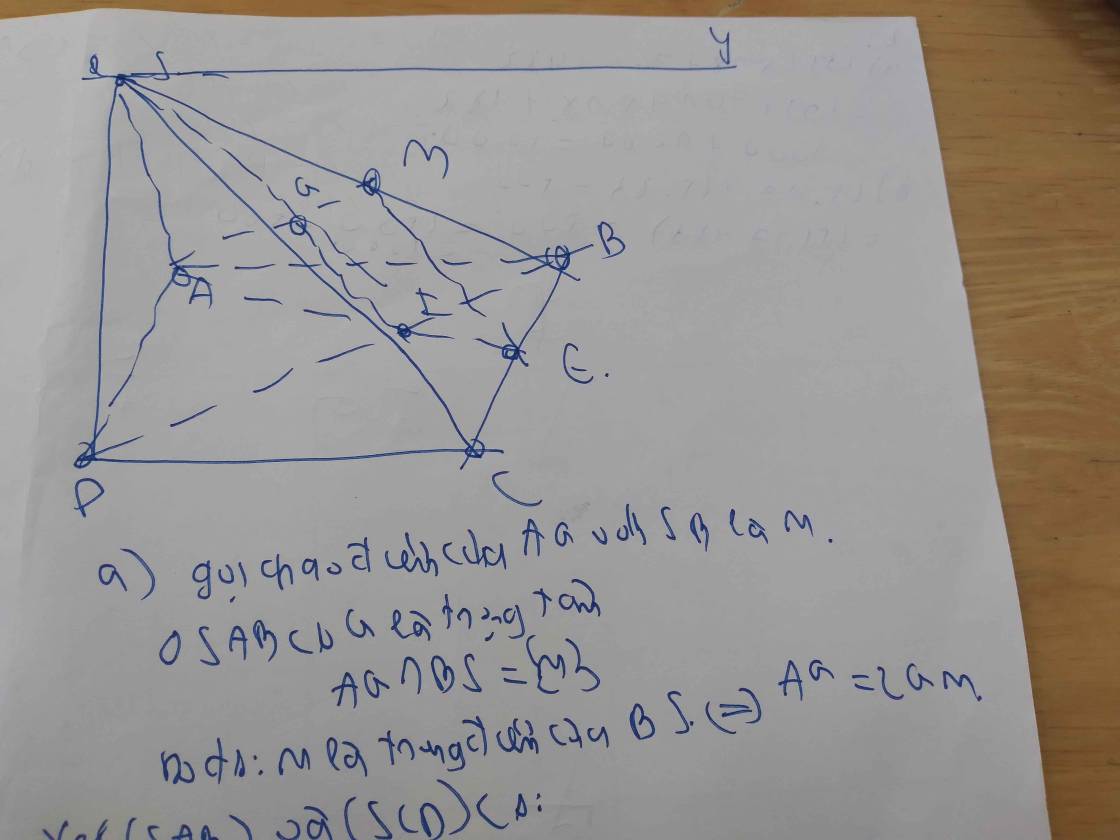 S y
M
G
B
A
I
E.
D C
a) gọi giao điểm của AG với SB là M.
△SAB có G là trọng tâm
AG ∩ BS = {M}
Do đó: M là trung điểm của BS. (=) AG = 2GM.
Xét (SAB) và (SCD) có: